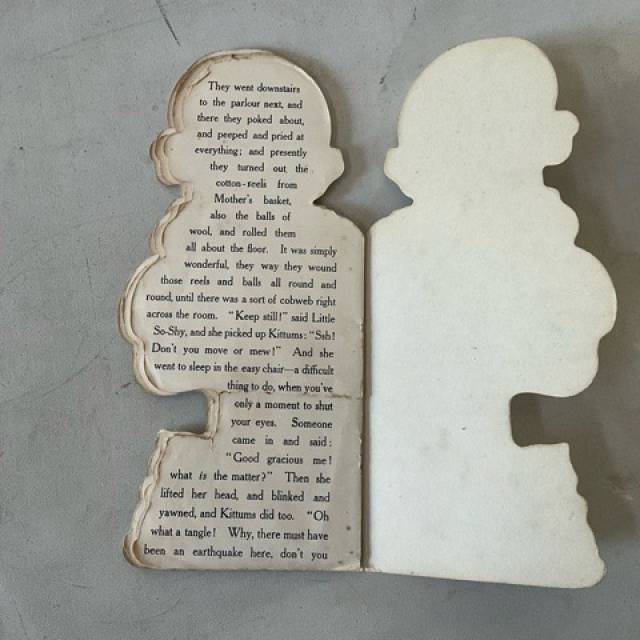 They went downstairs
to the parlour next, and
there they poked about,
and peeped and pried at
everything; and presently
they turned out the
cotton-reels from
Mother's basket,
also the balls of
wool, and rolled them
all about the floor. It was simply
wonderful, they way they wound
those reels and balls all round and
round, until there was a sort of cobweb right
across the room. "Keep still!" said Little
So-Shy, and she picked up Kittums: "Ssh!
Don't you move or mew!" And she
went to sleep in the easy chair—a difficult
thing to do, when you've
only a moment to shut
your eyes. Someone
came in and said:
"Good gracious me!
what is the matter?" Then she
lifted her head, and blinked and
yawned, and Kittums did too. "Oh
what a tangle! Why, there must have
been an earthquake here, don't you